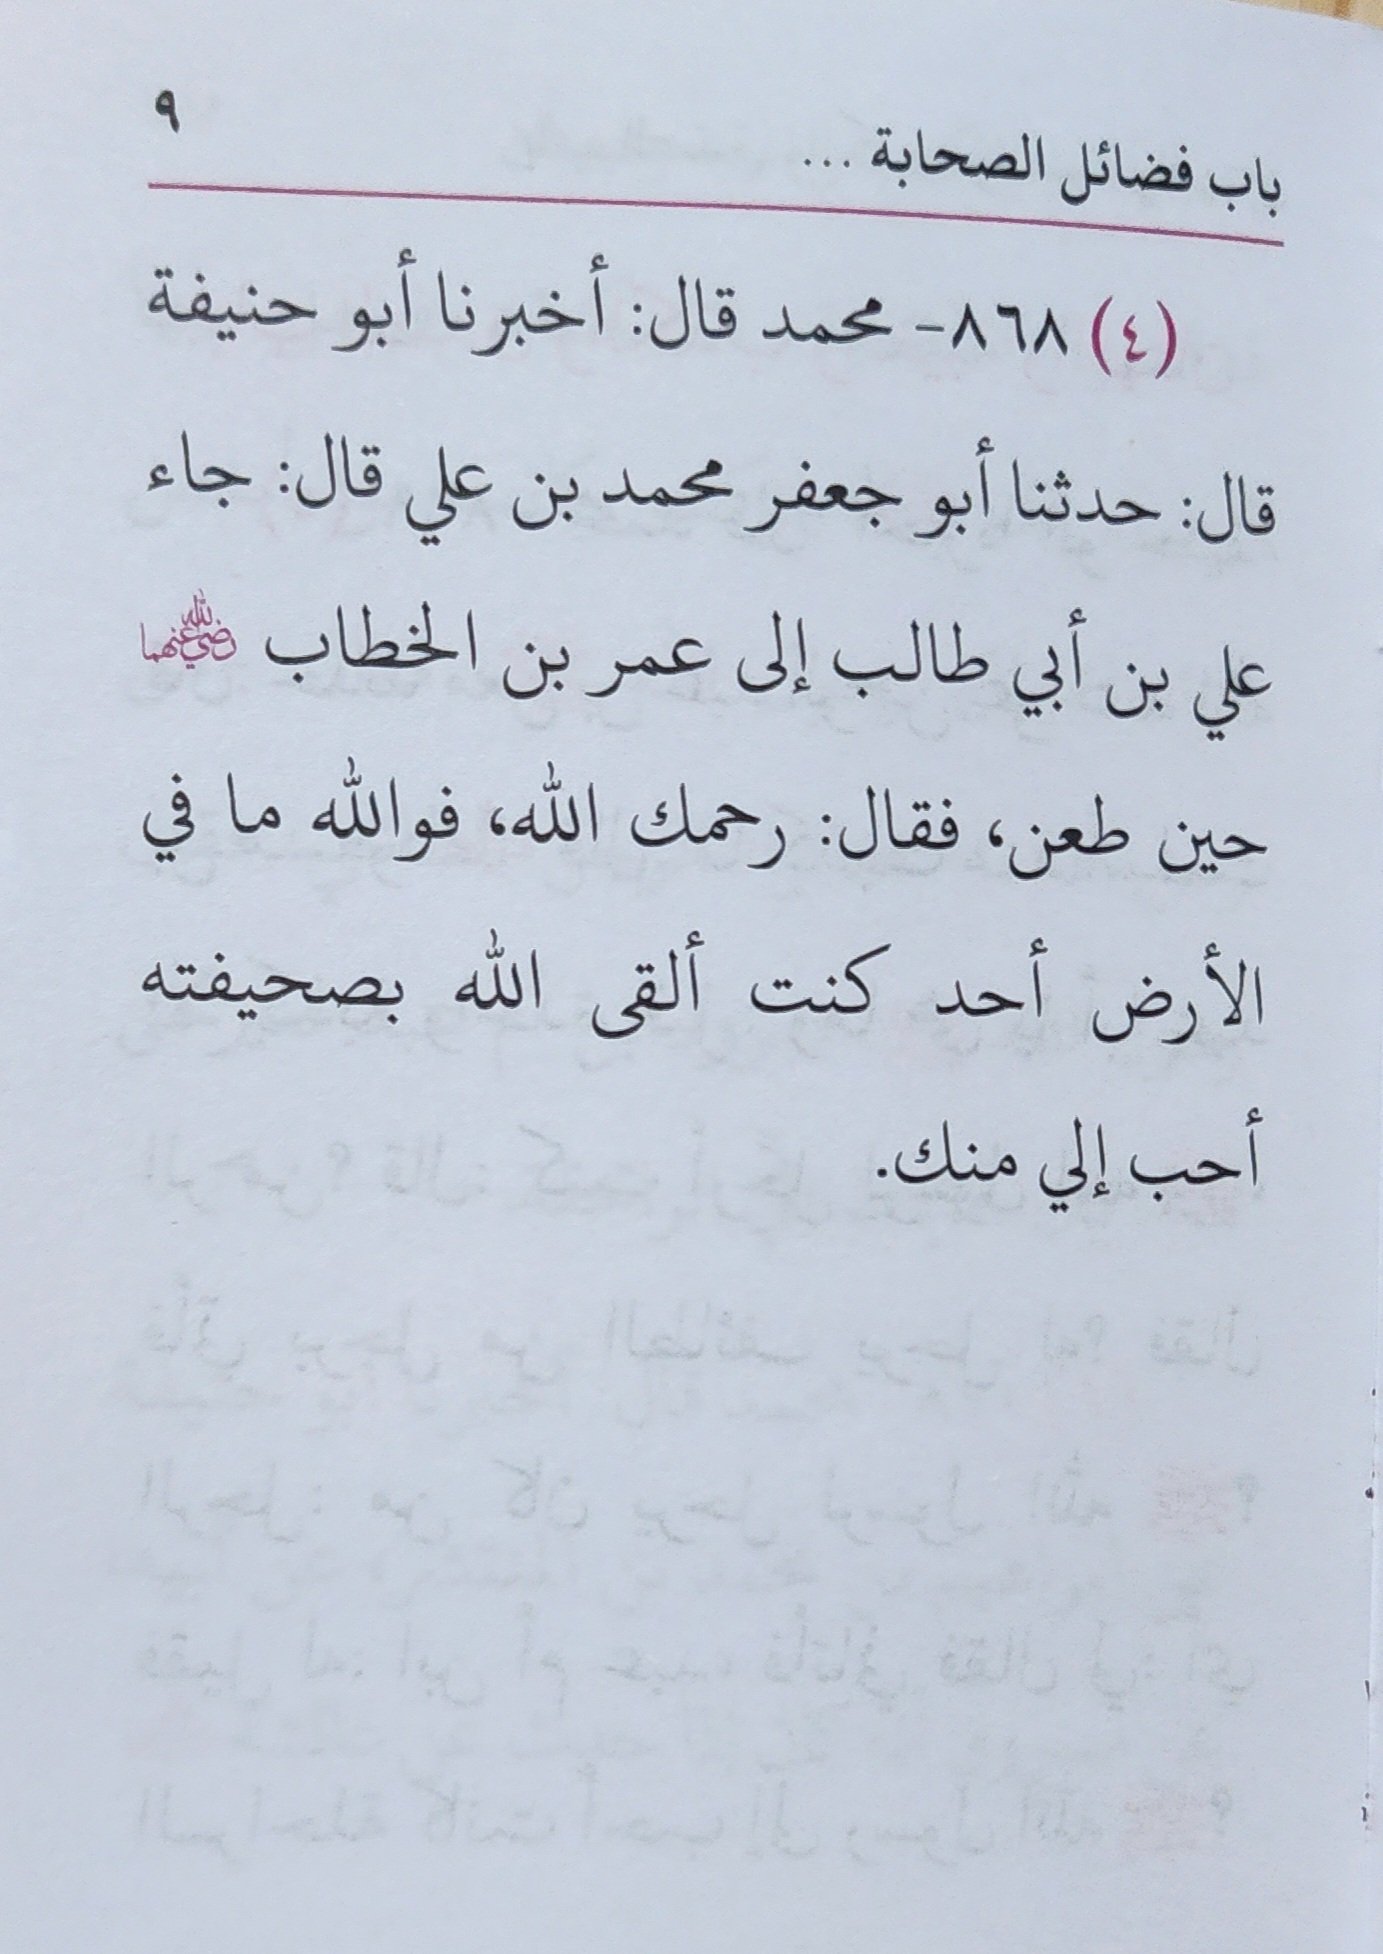 باب فضائل الصحابة ... ٩
(٤) ٨٦٨- محمد قال: أخبرنا أبو حنيفة
قال: حدثنا أبو جعفر محمد بن علي قال: جاء
علي بن أبي طالب إلى عمر بن الخطاب رضي الله عنهما
حين طعن، فقال: رحمك الله، فوالله ما في
الأرض أحد كنت ألقى الله بصحيفته
أحب إلي منك.